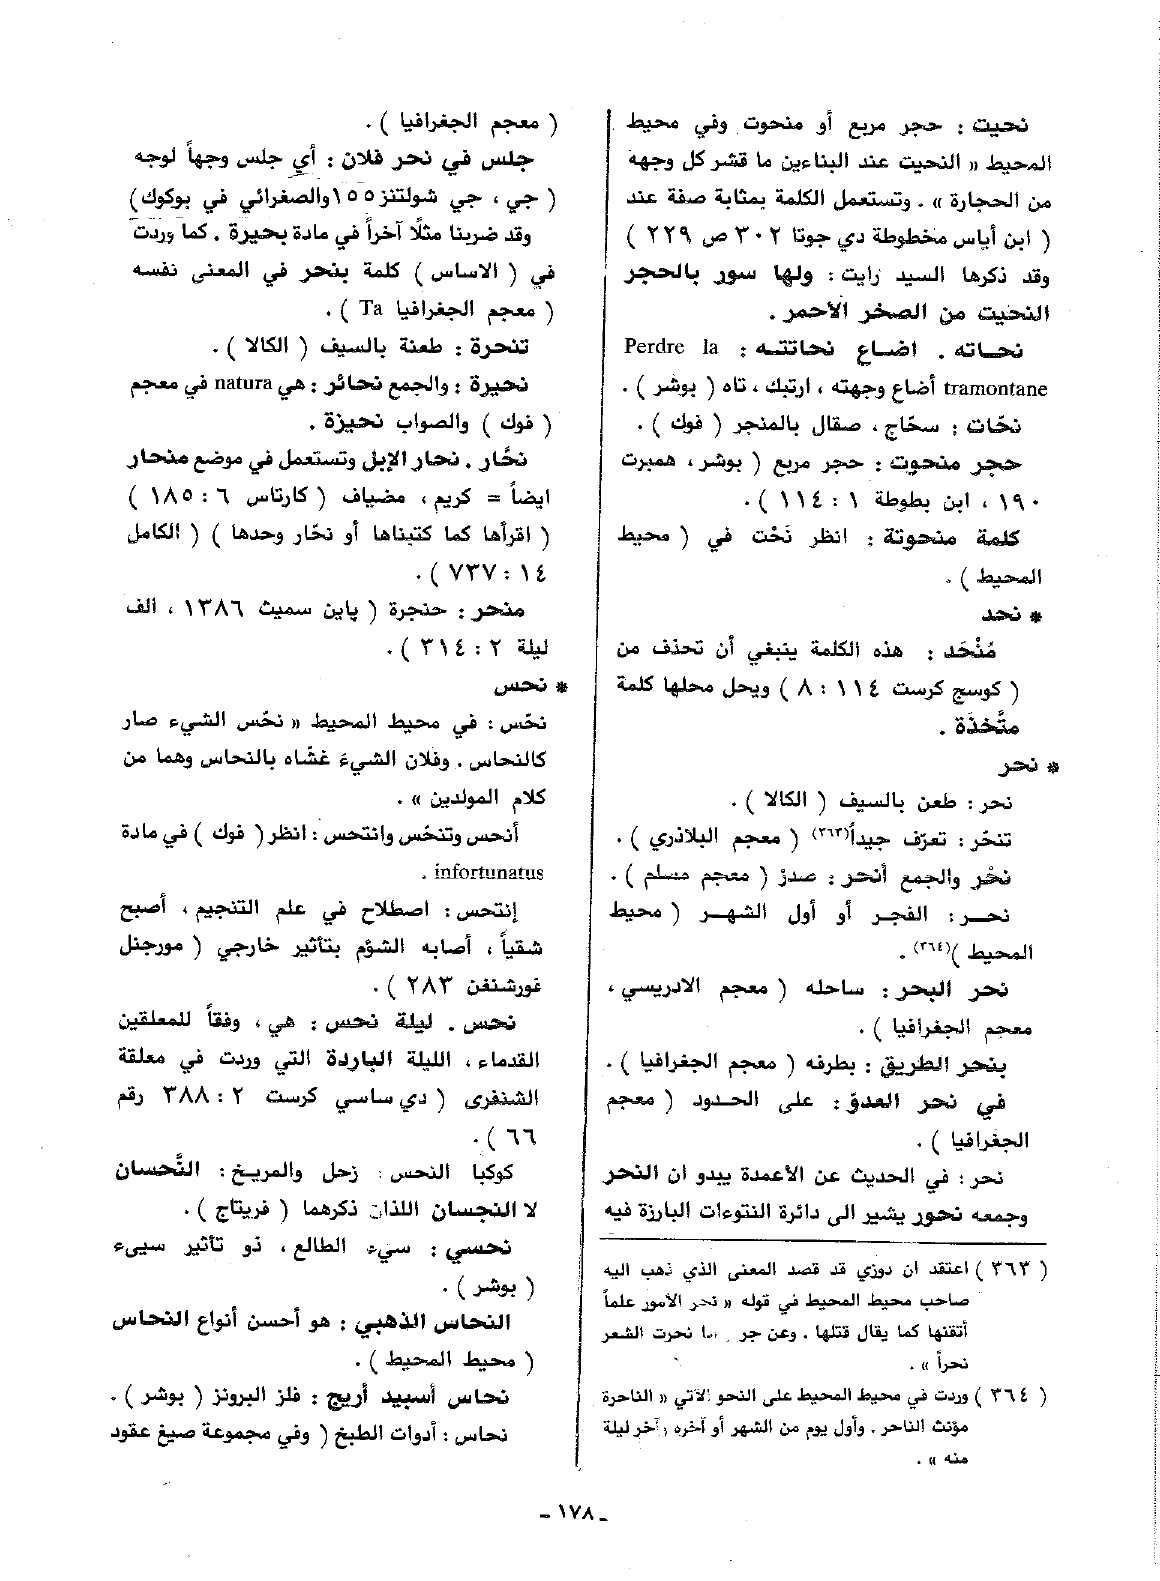 نحيت : حجر مربع أو منحوت وفي محيط
المحيط « النحيت عند البناءين ما قشر كل وجهه
من الحجارة » . وتستعمل الكلمة بمثابة صفة عند
( ابن أياس مخطوطة دي جوتا ٣٠٢ ص ٢٢٩ )
وقد ذكرها السيد رايت : ولها سور بالحجر
النحيت من الصخر الأحمر .
نحاته . اضاع نحاتته : Perdre la
tramontane أضاع وجهته ، ارتبك ، تاه ( بوشر ) .
نحّات : سحّاج ، صقال بالمنجر ( فوك ) .
حجر منحوت : حجر مربع ( بوشر ، همبرت
١٩٠ ، ابن بطوطة ١ : ١١٤ ) .
كلمة منحوتة : انظر نَحْت في ( محيط
المحيط ) .
* نحد
مُنْحَد : هذه الكلمة ينبغي أن تحذف من
( كوسج كرست ١١٤ : ٨ ) ويحل محلها كلمة
متَّخذَة .
* نحر
نحر : طعن بالسيف ( الكالا ) .
تنحّر : تعرّف جيداً(٣٦٣) ( معجم البلاذري ) .
نحْر والجمع أنحر : صدرْ ( معجم مسلم ) .
نحر : الفجر أو أول الشهر ( محيط
المحيط )(٣٦٤) .
نحر البحر : ساحله ( معجم الادريسي ،
معجم الجغرافيا ) .
بنحر الطريق : بطرفه ( معجم الجغرافيا ) .
في نحر العدوّ : على الحدود ( معجم
الجغرافيا ) .
نحر : في الحديث عن الأعمدة يبدو ان النحر
وجمعه نحور يشير الى دائرة النتوءات البارزة فيه
( ٣٦٣ ) اعتقد ان دوزي قد قصد المعنى الذي ذهب اليه
صاحب محيط المحيط في قوله « نحر الأمور علماً
أتقنها كما يقال قتلها . وعن جر ما نحرت الشعر
نحراً » .
( ٣٦٤ ) وردت في محيط المحيط على النحو الآتي « الناحرة
مؤنث الناحر . وأول يوم من الشهر أو آخره وآخر ليلة
منه » .
( معجم الجغرافيا ) .
جلس في نحر فلان : أي جلس وجهاً لوجه
( جي ، جي شولتنز ١٥٥ والصغرائي في بوكوك )
وقد ضربنا مثلًا آخراً في مادة بحيرة . كما وردت
في ( الاساس ) كلمة بنحر في المعنى نفسه
( معجم الجغرافيا Ta ) .
تنحرة : طعنة بالسيف ( الكالا ) .
نحيرة : والجمع نحائر : هي natura في معجم
( فوك ) والصواب نحيزة .
نحَّار . نحار الإبل وتستعمل في موضع منحار
ايضاً = كريم ، مضياف ( كارتاس ٦ : ١٨٥ )
( اقرأها كما كتبناها أو نحّار وحدها ) ( الكامل
١٤ : ٧٣٧ ) .
منحر : حنجرة ( پاين سميث ١٣٨٦ ، الف
ليلة ٢ : ٣١٤ ) .
* نحس
نحّس : في محيط المحيط « نحّس الشيء صار
كالنحاس . وفلان الشيءَ غشّاه بالنحاس وهما من
كلام المولدين » .
أنحس وتنحّس وانتحس : انظر ( فوك ) في مادة
infortunatus .
إنتحس : اصطلاح في علم التنجيم ، أصبح
شقياً ، أصابه الشؤم بتأثير خارجي ( مورجنل
غورشنغن ٢٨٣ ) .
نحس . ليلة نحس : هي ، وفقاً للمعلقين
القدماء ، الليلة الباردة التي وردت في معلقة
الشنفرى ( دي ساسي كرست ٢ : ٣٨٨ رقم
٦٦ ) .
كوكبا النحس : زحل والمريخ : النَّحسان
لا النجسان اللذان ذكرهما ( فريتاج ) .
نحسي : سيء الطالع ، ذو تأثير سييء
( بوشر ) .
النحاس الذهبي : هو أحسن أنواع النحاس
( محيط المحيط ) .
نحاس أسبيد أريج : فلز البرونز ( بوشر ) .
نحاس : أدوات الطبخ ( وفي مجموعة صيغ عقود
- ١٧٨ -